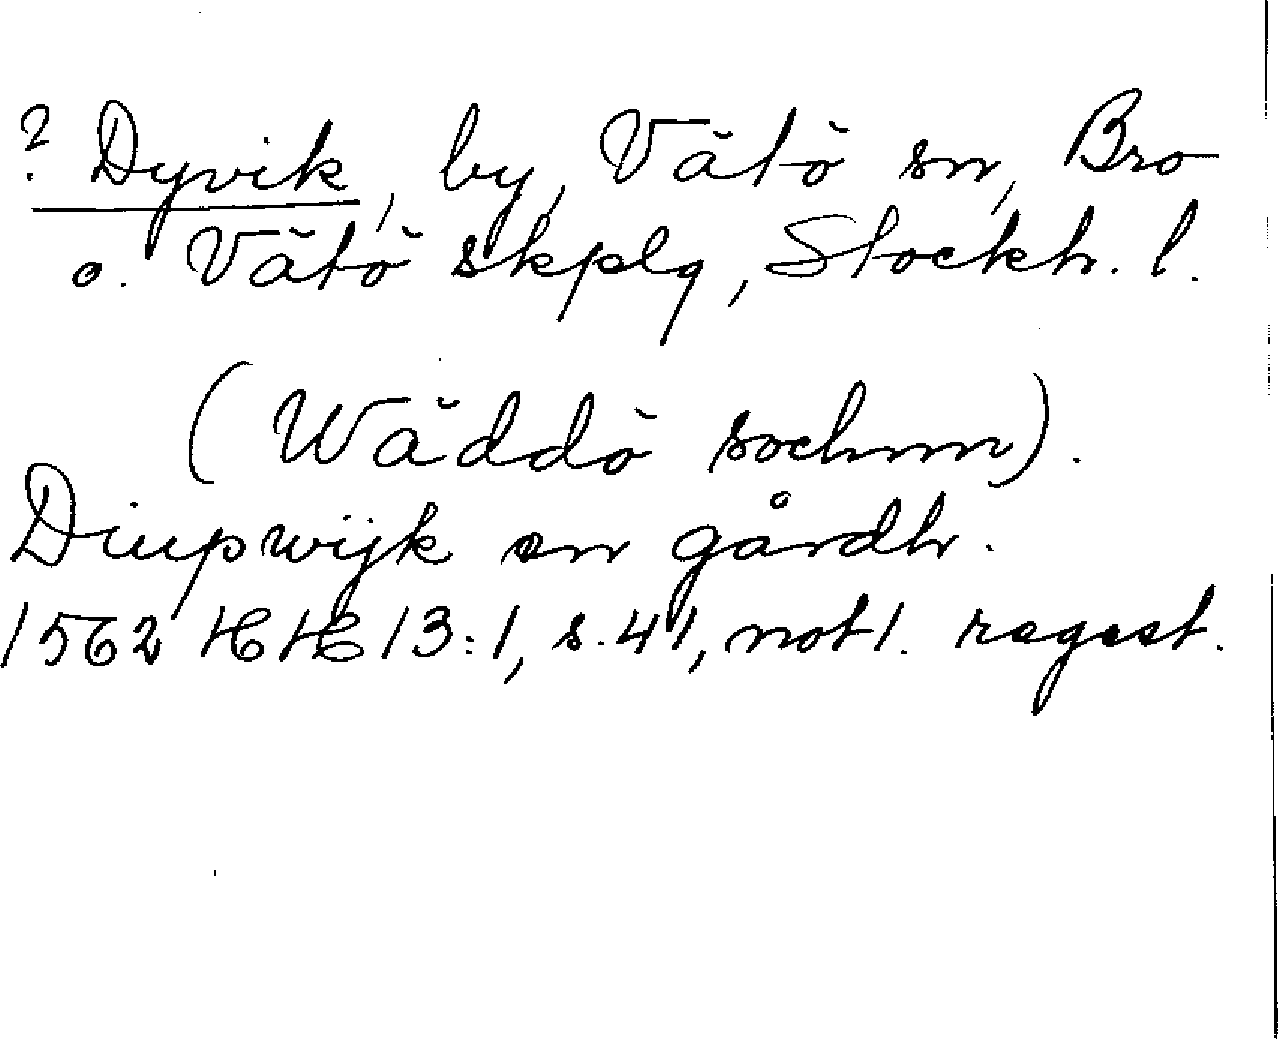 ? Dyvik, by, Vätö sn, Bro
o. Vätö skplg, Stockh. l.
(Wäddö sochnn).
Diupwijk en gårdh.
1562 HH 13:1, s. 41, not 1. regest.